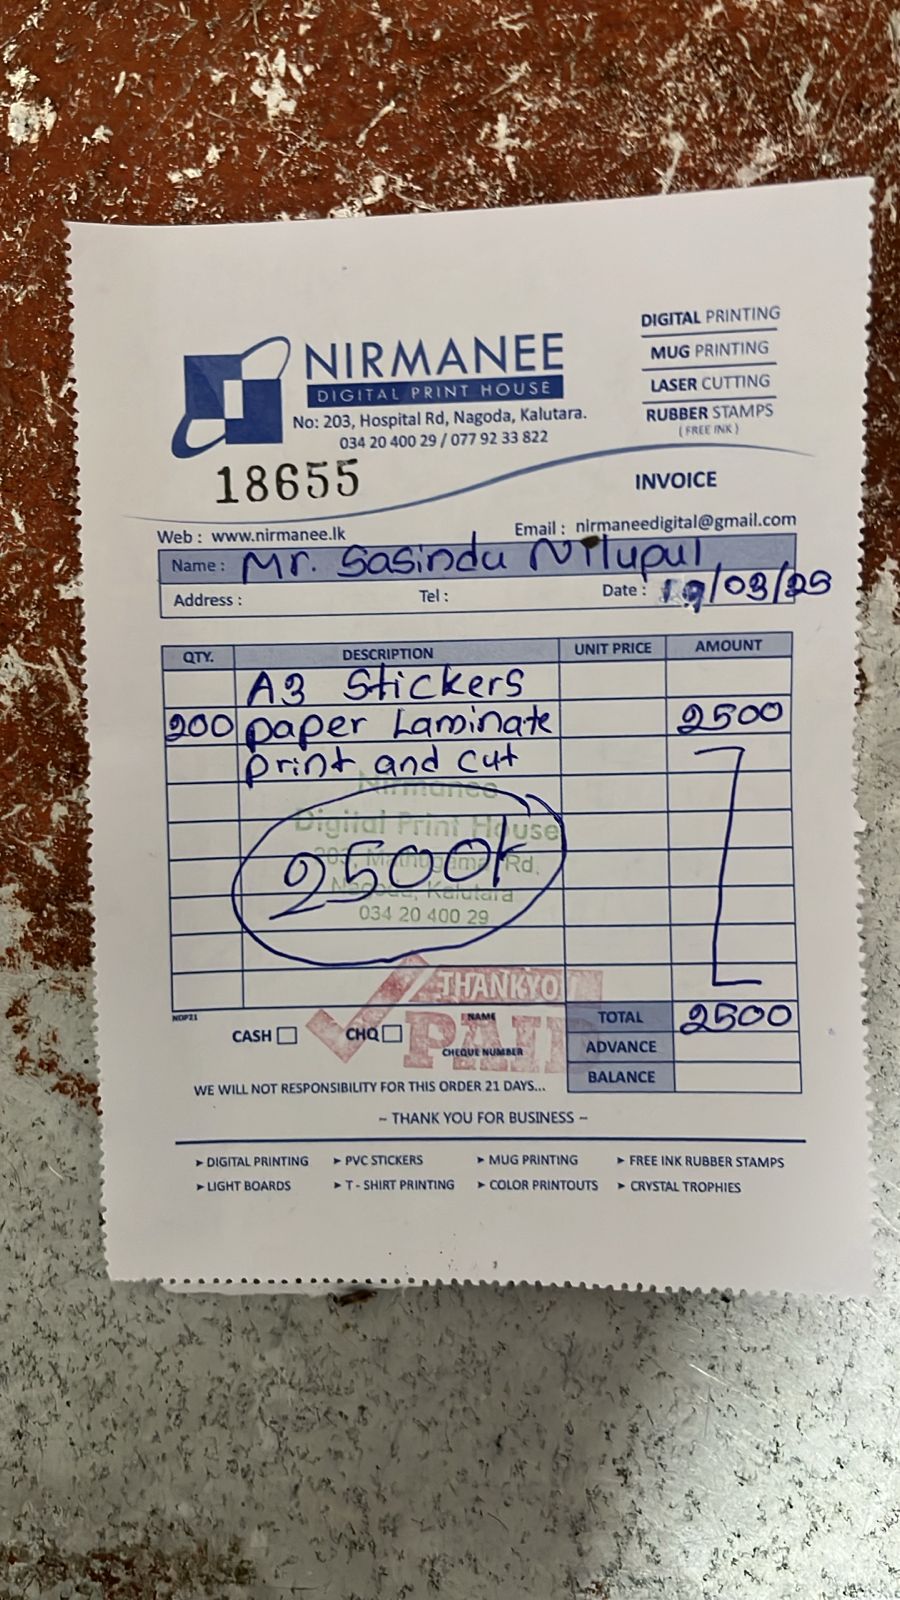 NIRMANEE
DIGITAL PRINT HOUSE
No: 203, Hospital Rd, Nagoda, Kalutara.
034 20 400 29 / 077 92 33 822
DIGITAL PRINTING
MUG PRINTING
LASER CUTTING
RUBBER STAMPS
(FREE INK)
18655
INVOICE
Web : www.nirmanee.lk
Email : nirmaneedigital@gmail.com
Name : Mr. Sasindu Nilupul
Address : Tel : Date : /03/25
QTY. DESCRIPTION UNIT PRICE AMOUNT
A3 Stickers
200 paper Laminate 2500
print and cut
Nirmanee
Digital Print House
203, Mathugama Rd,
Nagoda, Kalutara
034 20 400 29
2500/-
THANKYOU
PAID
NDP21
CASH CHQ
NAME
CHEQUE NUMBER
TOTAL 2500
ADVANCE
BALANCE
WE WILL NOT RESPONSIBILITY FOR THIS ORDER 21 DAYS...
~ THANK YOU FOR BUSINESS ~
➤ DIGITAL PRINTING ➤ PVC STICKERS ➤ MUG PRINTING ➤ FREE INK RUBBER STAMPS
➤ LIGHT BOARDS ➤ T - SHIRT PRINTING ➤ COLOR PRINTOUTS ➤ CRYSTAL TROPHIES